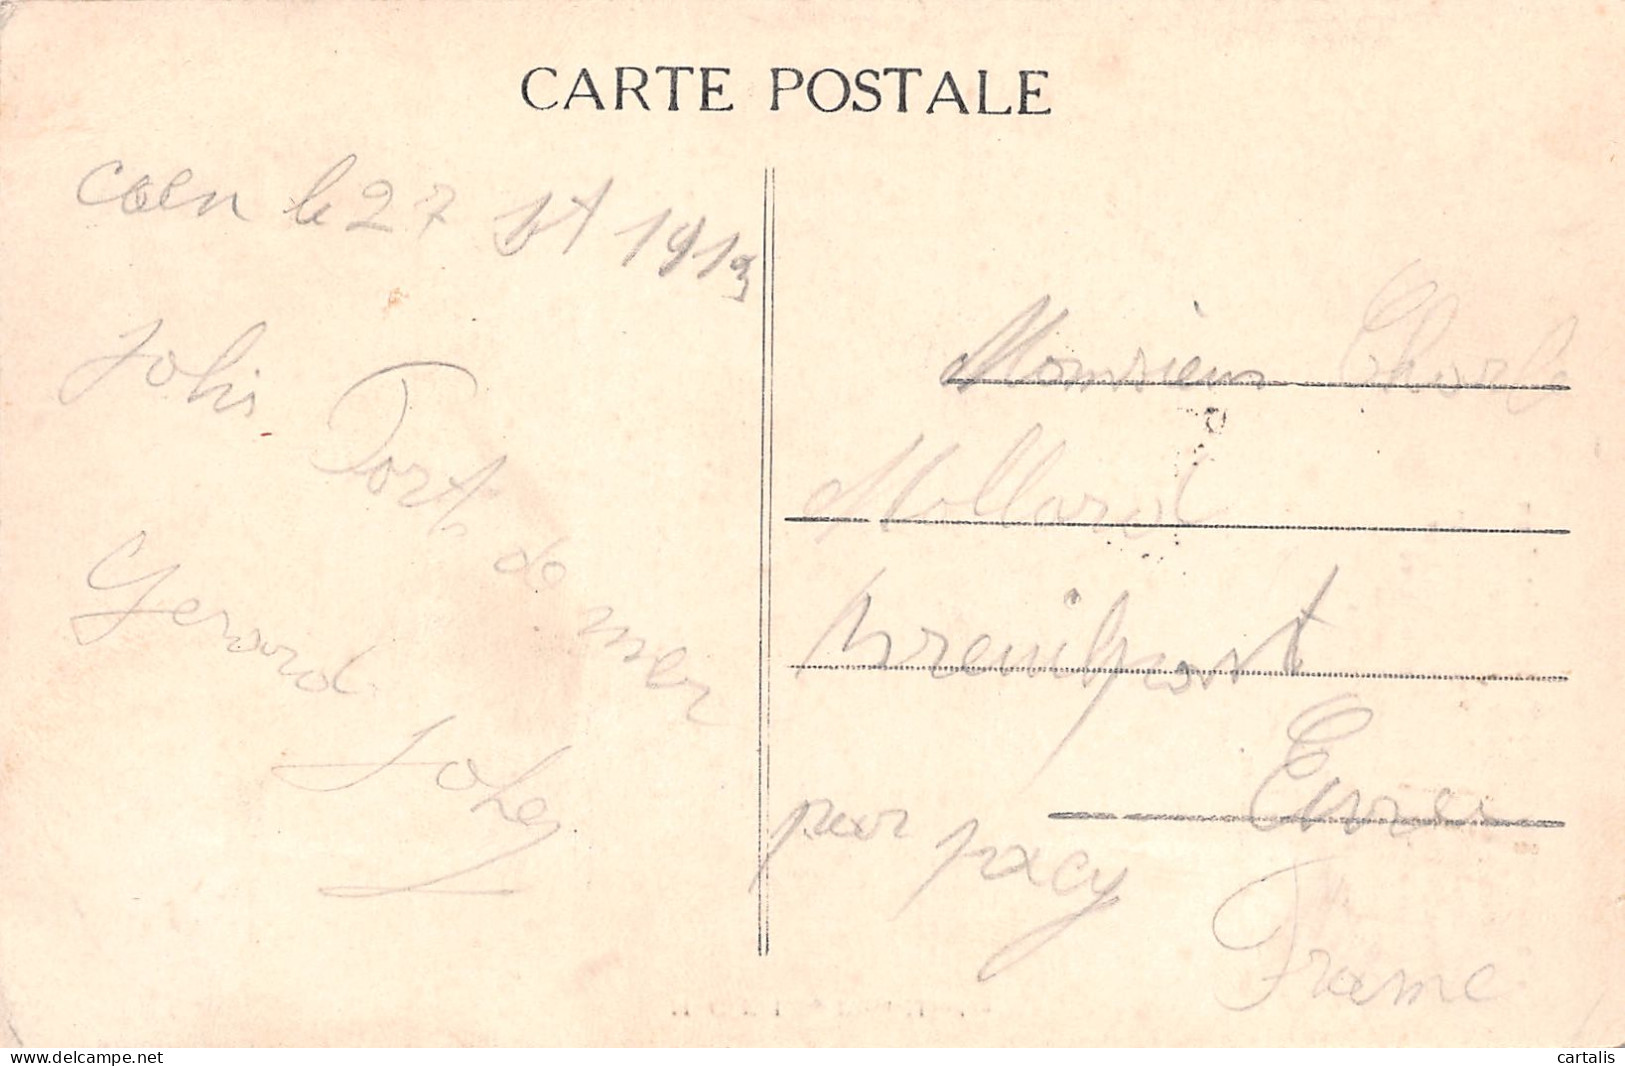 CARTE POSTALE
Caen le 27 1913
Johi Port de mer
Gerard
Johey
Monsieur Charle
Mollard
Breuilpont
Eure
par pacy
France
cartalis